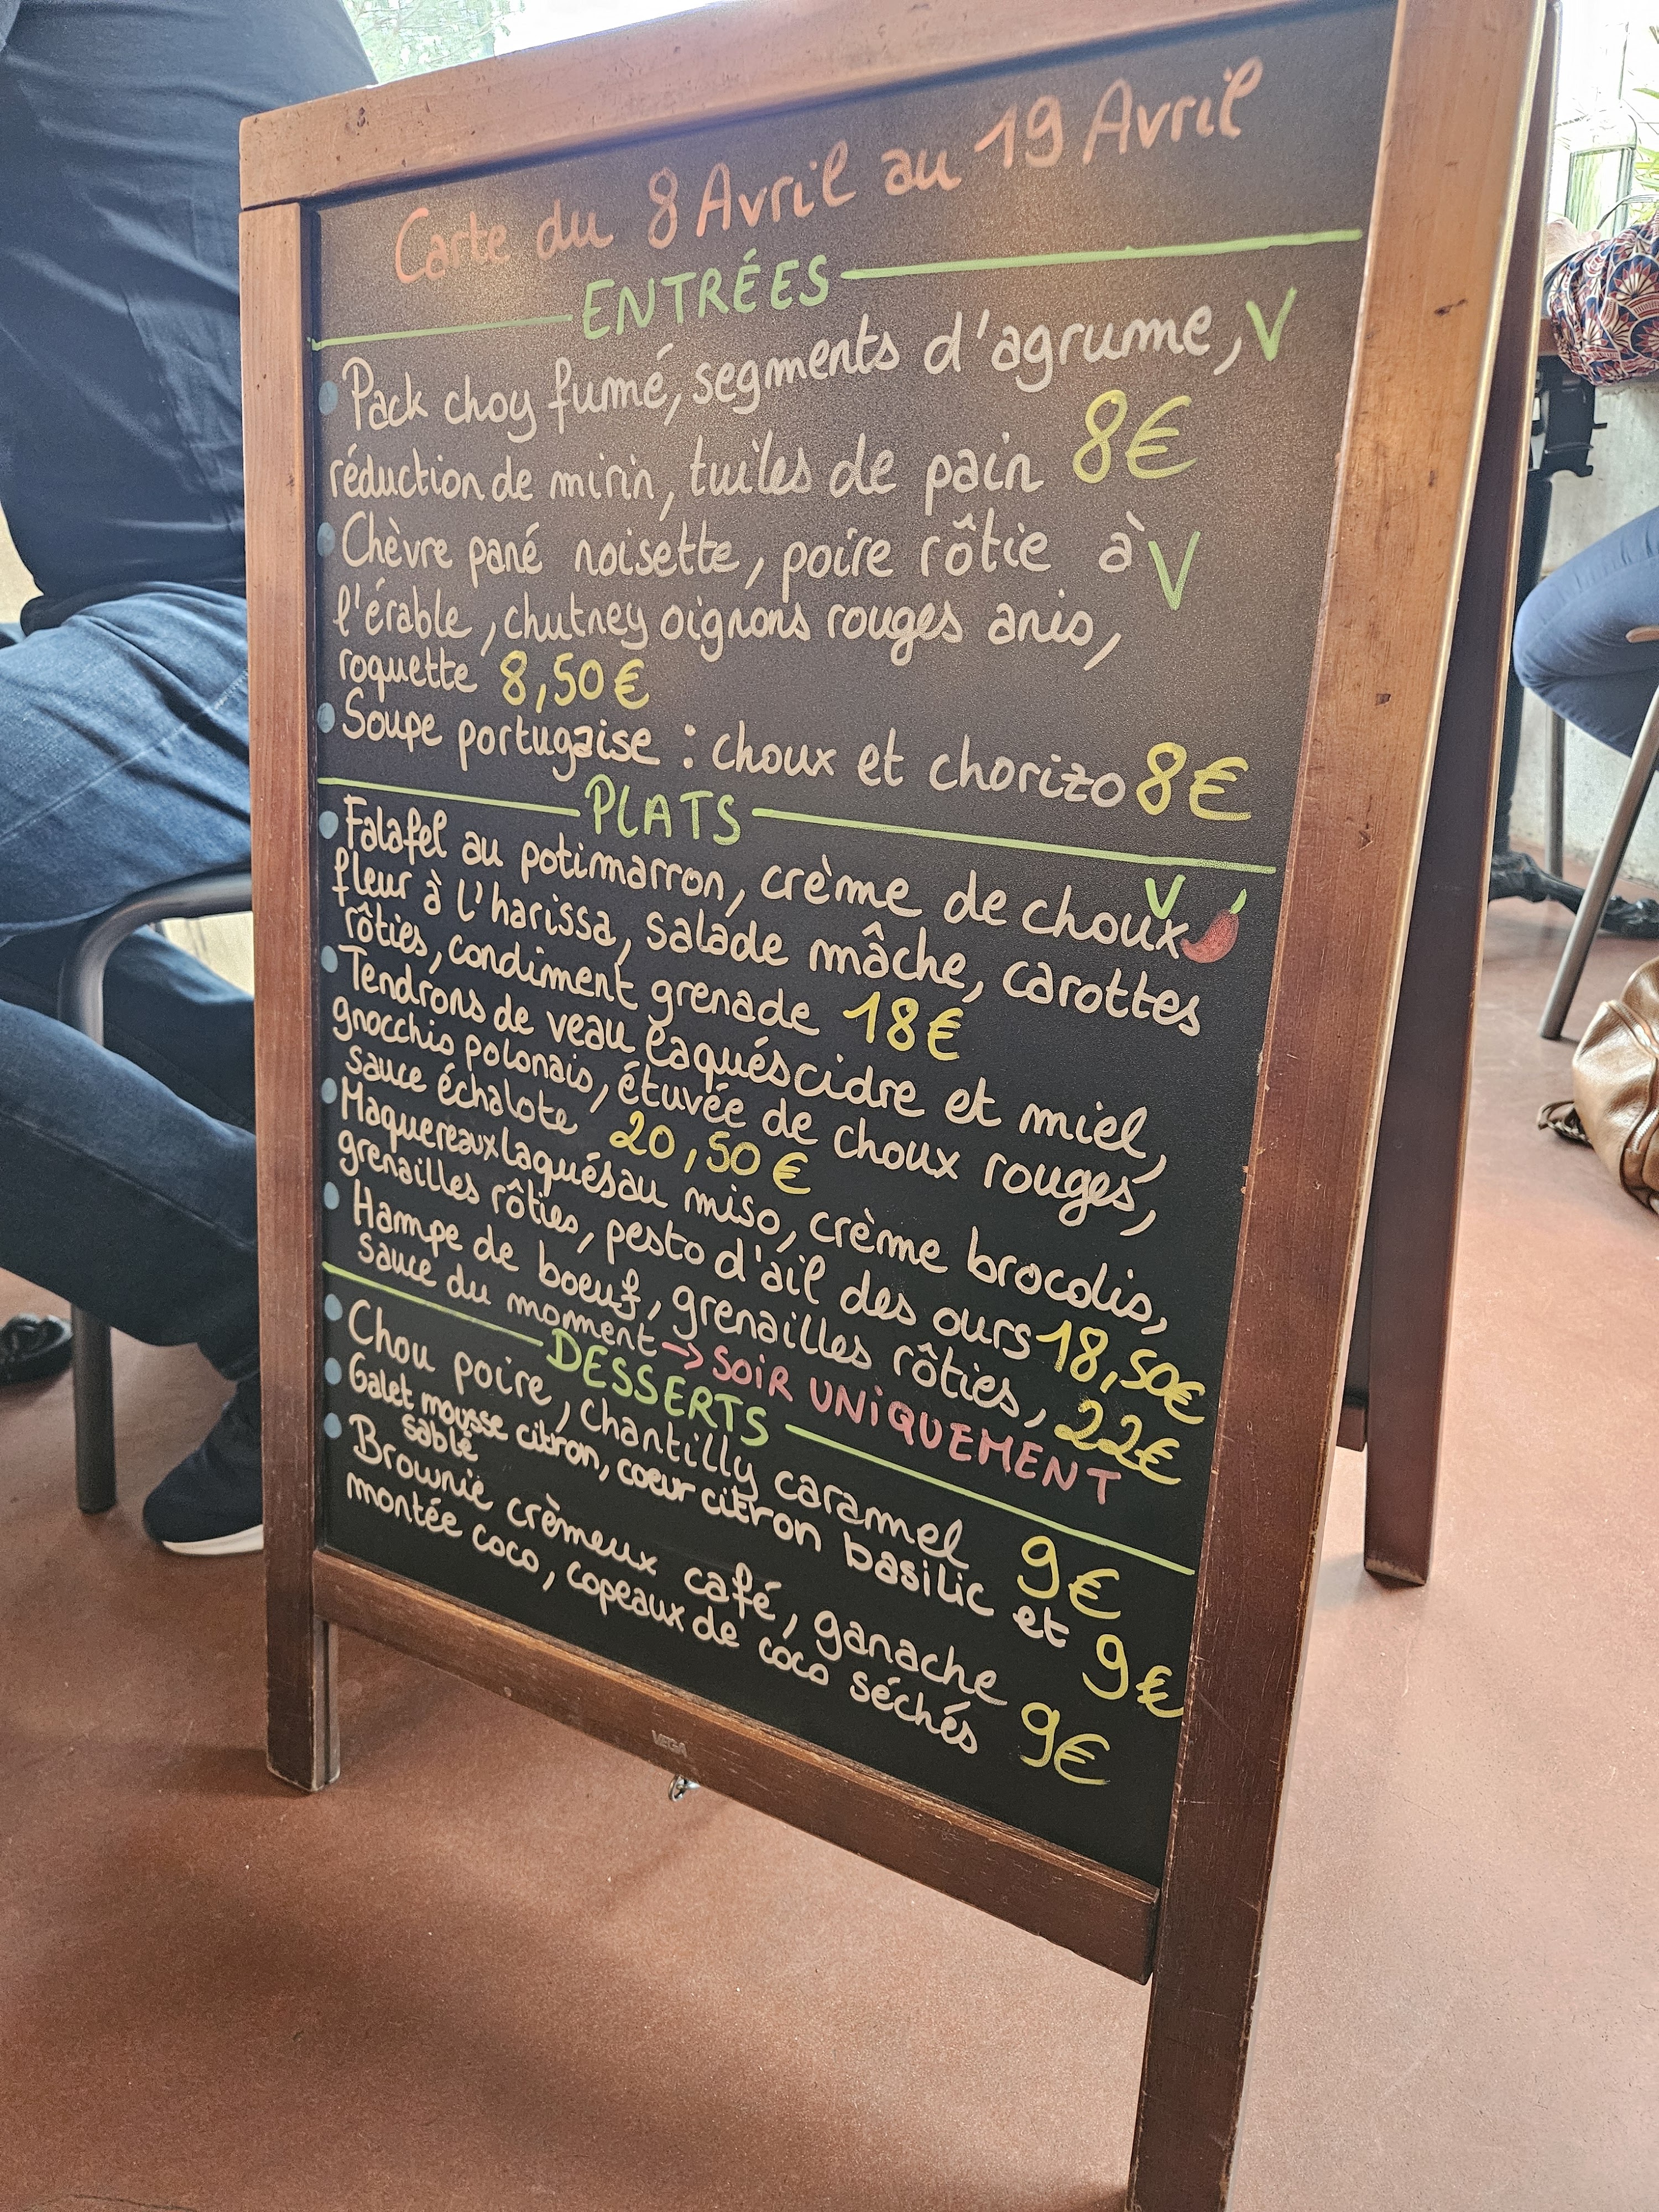 Carte du 8 Avril au 19 Avril
ENTRÉES
Pack choy fumé, segments d'agrume, V
réduction de mirin, tuiles de pain 8€
Chèvre pané noisette, poire rôtie à V
l'érable, chutney oignons rouges anis,
roquette 8,50€
Soupe portugaise : choux et chorizo 8€
PLATS
Falafel au potimarron, crème de choux V
fleur à l'harissa, salade mâche, carottes
rôties, condiment grenade 18€
Tendrons de veau laqués cidre et miel,
gnocchis polonais, étuvée de choux rouges,
sauce échalote 20,50€
Maquereaux laqués au miso, crème brocolis,
grenailles rôties, pesto d'ail des ours 18,50€
Hampe de boeuf, grenailles rôties, 22€
sauce du moment → SOIR UNIQUEMENT
DESSERTS
Chou poire, chantilly caramel 9€
Galet mousse citron, coeur citron basilic et 9€
sablé
Brownie crèmeux café, ganache
montée coco, copeaux de coco séchés 9€
VEGA